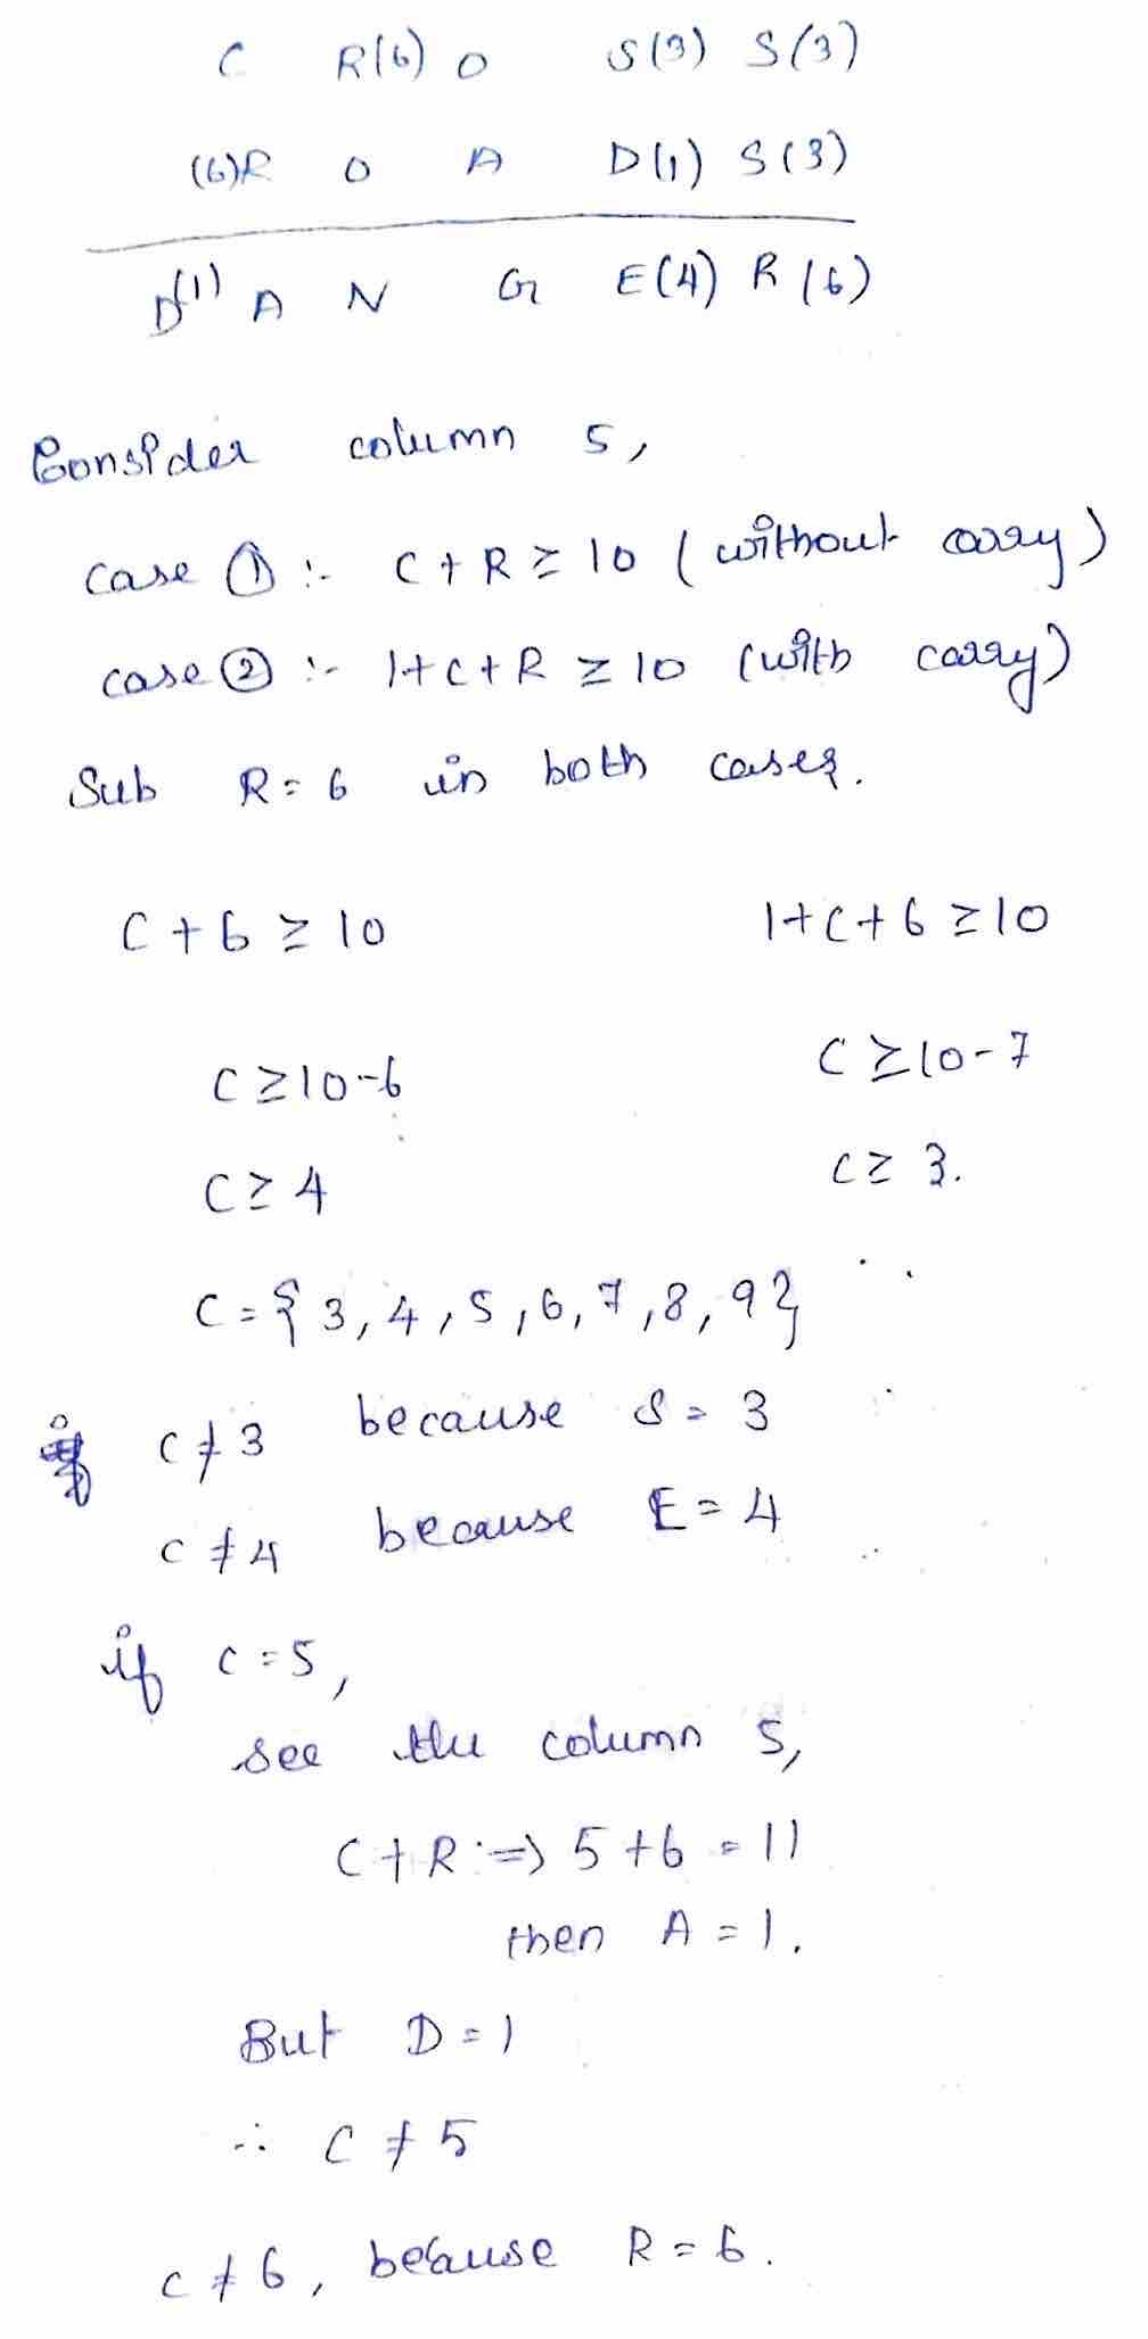 C R(6) O S(3) S(3)
(6)R O A D(1) S(3)
D(1) A N G E(4) R(6)
Consider column 5,
case ① :- C + R ≥ 10 (without carry)
case ② :- 1 + C + R ≥ 10 (with carry)
Sub R = 6 in both cases.
C + 6 ≥ 10 1 + C + 6 ≥ 10
C ≥ 10 - 6 C ≥ 10 - 7
C ≥ 4 C ≥ 3.
C = { 3, 4, 5, 6, 7, 8, 9 }
C ≠ 3 because S = 3
C ≠ 4 because E = 4
if C = 5,
see the column 5,
C + R ⇒ 5 + 6 = 11
then A = 1.
But D = 1
∴ C ≠ 5
C ≠ 6, because R = 6.